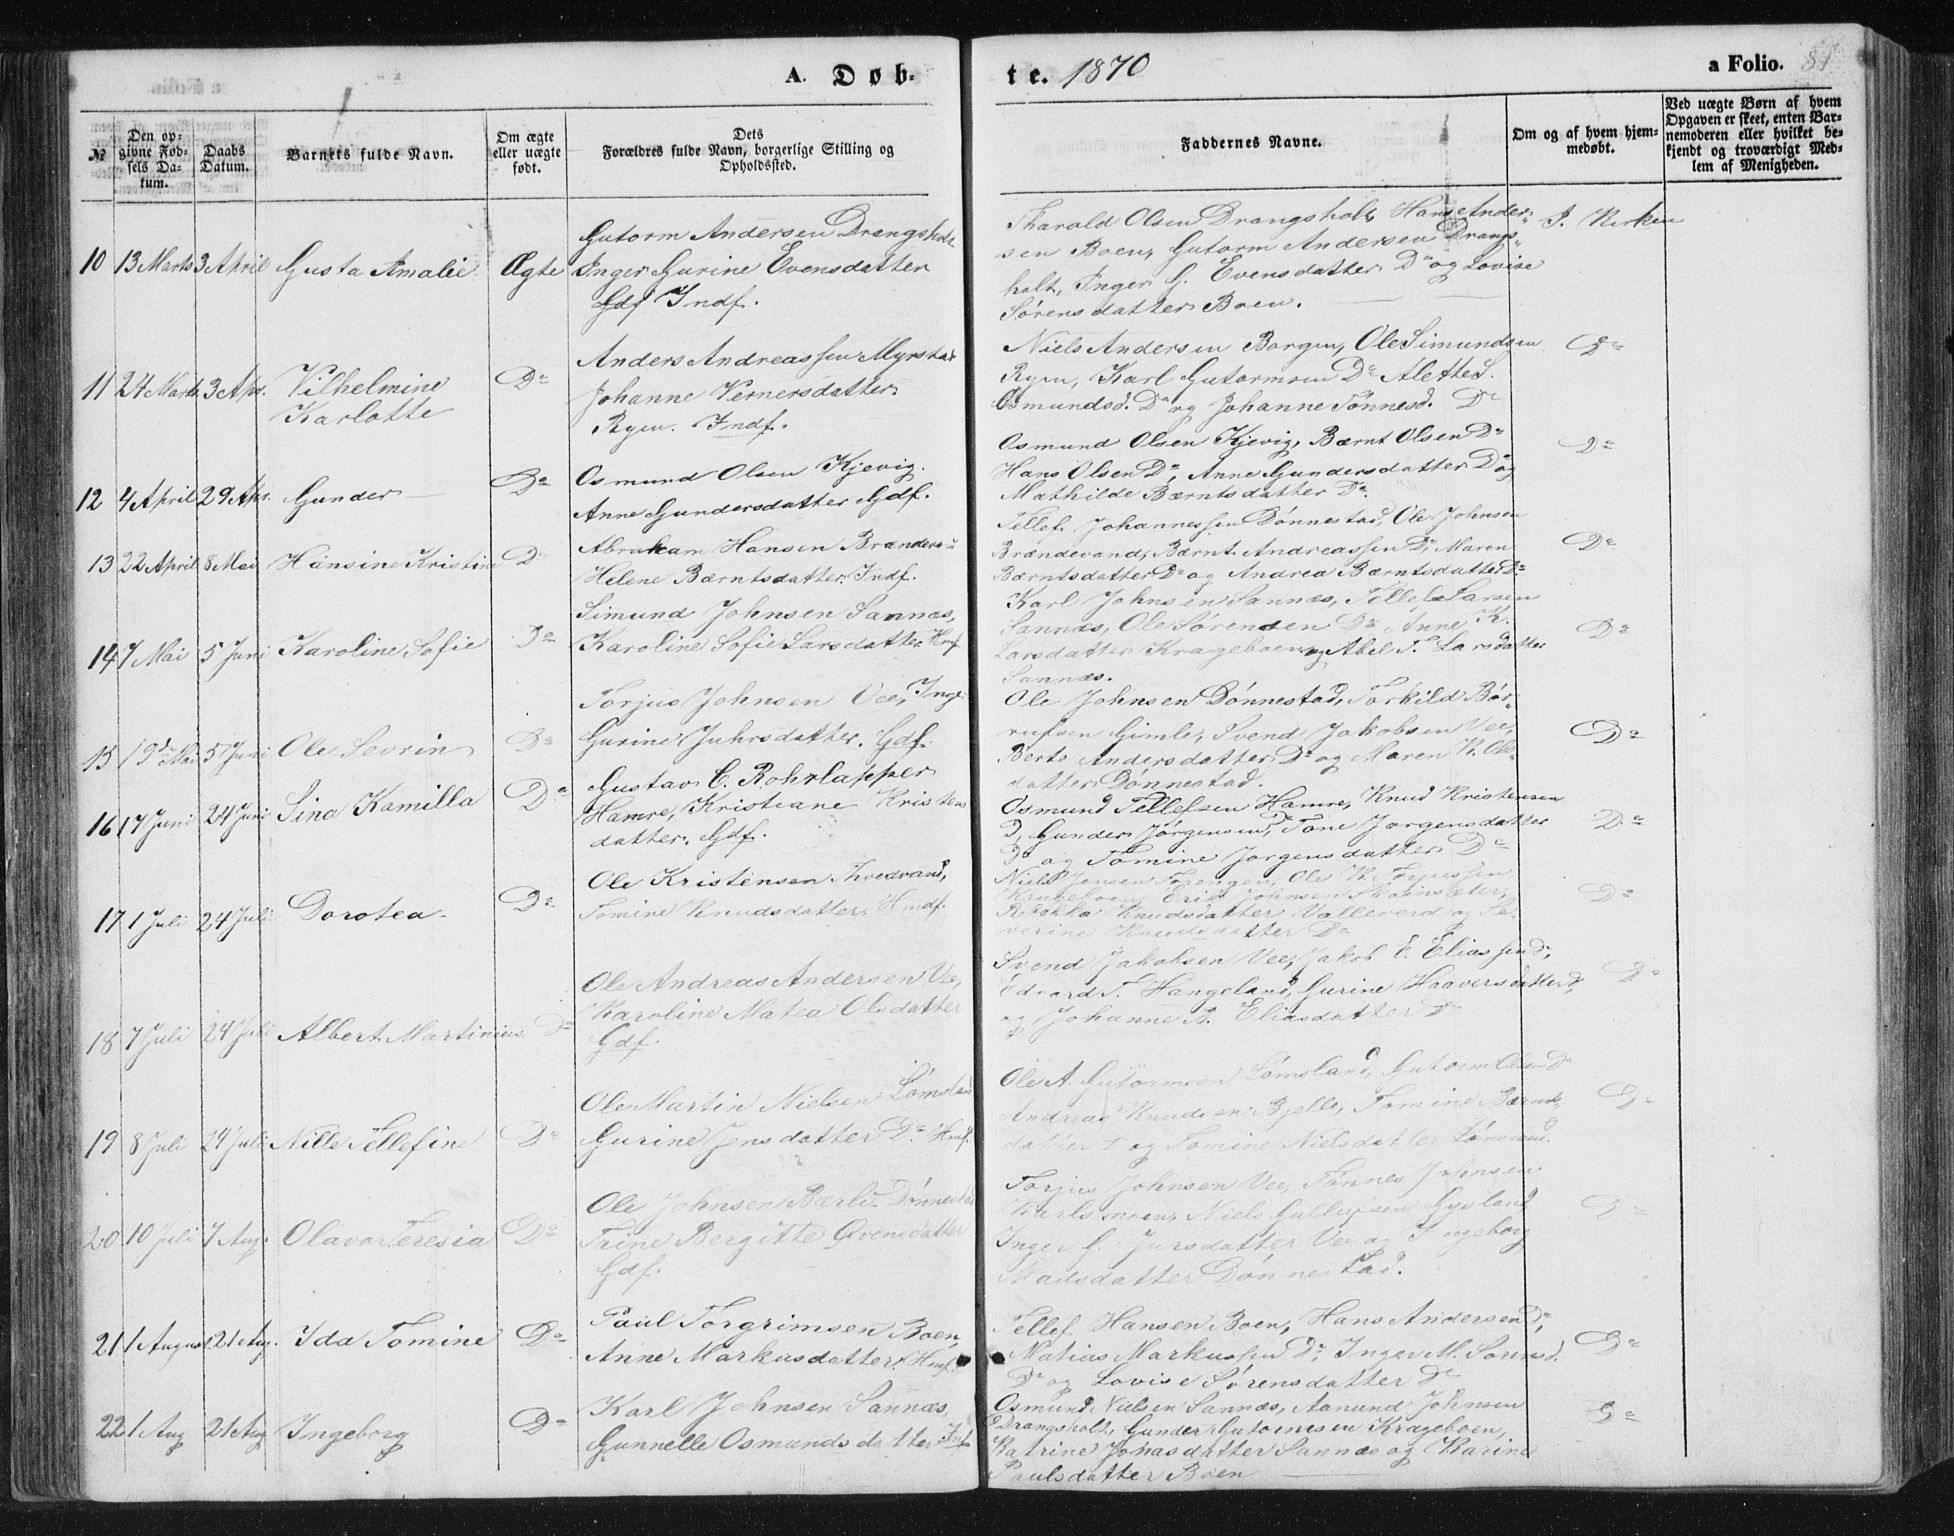 A. Døb-
te. 1870
a Folio. 81
№
Den op-
givne Fød-
sels Da-
tum.
Daabs
Datum.
Barnets fulde Navn.
Om ægte
eller uægte
født.
Dets
Forældres fulde Navn, borgerlige Stilling og
Opholdssted.
Faddernes Navne.
Om og af hvem hjem-
medøbt.
Ved uægte Børn af hvem
Opgaven er skeet, enten Bar-
nemoderen eller hvilket be-
kjendt og troværdigt Med-
lem af Menigheden.
10 13 Marts 3 April Gusta Amalie Ægte
Gutorm Andersen Drangsholt
Inger Gurine Evensdatter
Gdf Indf.
Tharald Olsen Drangsholt, Hans Ander-
sen Boen, Gutorm Andersen Drangs-
holt, Inger G. Evensdatter Do og Lovise
Sørensdatter Boen.
I. Kirken
11 24 Marts 3 Apr. Vilhelmine
Karlotte
Do
Anders Andreassen Myrstad
Johanne Vernersdatter
Ryen. Indf.
Niels Andersen Borgen, Ole Simundsen
Ryen, Karl Gutormsen Do Alette S.
Osmundsd. Do og Johanne Tønnesd. Do
Do
12 4 April 29 Apr. Gunder Do
Osmund Olsen Kjevig.
Anne Gundersdatter Gdf.
Osmund Olsen Kjevig, Bærnt Olsen Do
Hans Olsen Do, Anne Gundersdatter Do og
Mathilde Bærntsdatter Do.
Do
13 22 April 8 Mai Hansine Kristine D
Abraham Hansen
Helene Bærntsdatter. Indf.
Tellef Johannessen Dønnestad, Ole Johnsen
Brændevand, Bærnt Andreassen Do, Maren
Bærntsdatter Do og Andrea Bærntsdatter Do.
Do
14 7 Mai 5 Juni Karoline Sofie Do
Simund Johnsen Sannæs,
Karoline Sofie Larsdatter. Hmf
Karl Johnsen Sannæs, Tellef Larsen
Sannæs, Ole Sørensen Do Anne K.
Larsdatter Krageboen og Abel T. Larsdatter
Sannæs.
Do
15 19de Mai 5 Juni Ole Sevrin Do
Torjus Johnsen Vee, Inger
Gurine Juhrsdatter. Gdf.
Ole Johnsen Dønnestad, Torkild Bør-
rufsen Gimle, Svend Jakobsen Vee,
Berte Andersdatter Do og Maren K. Ols-
datter Dønnestad.
Do
16 17 Juni 24 Juni Sina Kamilla Do
Gustav C. Rohrlapper
Hamre, Kristiane Kristens
datter. Gdf.
Osmund Tellefsen Hamre, Knud Kristensen
D, Gunder Jørgensen Do, Tone Jørgensdatter
Do og Tomine Jørgensdatter Do
Do
17 1 Juli 24 Juli Dorotea Do
Ole Kristensen Thvedvand,
Tomine Knudsdatter. Hmdf.
Niels Jensen Ole K. Torjussen
Krageboen, Erik Johnsen
Rebekka Knudsdatter Valleverd og Se-
verine Knudsdatter Do
Do
18 7 Juli 24 Juli Albert Martinius Do
Ole Andreas Andersen Vee,
Karoline Matea Olsdatter
Gdf.
Svend Jakobsen Vee, Jakob E. Eliassen Do,
Edvard T. Hangeland, Gurine Haaversdatter Do,
og Johanne B. Eliasdatter Do
Do
19 8 Juli 24 Juli Nille Tellefine Do
Ole Martin Nielsen Lømsland
Gurine Jensdatter Do. Hmf.
Ole A. Gutormsen Lømsland, Gutorm Olsen Do
Andreas Knudsen Bjelle, Tomine Bærnds-
datter D og Tomine Nielsdatter Lømsland.
Do
20 10 Juli 7 Aug. Olava Teresia Do
Ole Johnsen Dønnestad
Trine Bergitte Evensdatter
Gdf.
Torjus Johnsen Vee, Tønnes Johnsen
Karlsmoen, Niels Gullefsen Gysland
Inger G. Jursdatter Vee og Ingeborg
Madsdatter Dønnestad.
Do
21 1 August 21 Aug. Ida Tomine Do
Paul Torgrimsen Boen,
Anne Markusdatter. Hmf
Tellef Hansen Boen, Hans Andersen Do,
Matias Markussen Do, Inger M. Sørensd.
Do og Lovise Sørensdatter Do
Do
22 1 Aug 21 Aug Ingeborg Do
Karl Johnsen Sannæs,
Gunnelle Osmundsdatter Inf
Osmund Nielsen Sannæs, Aanund Johnsen
Drangsholt, Gunder Gutormsen Krageboen,
Katrine Jonasdatter Sannæs og Karine
Paulsdatter Boen
Do